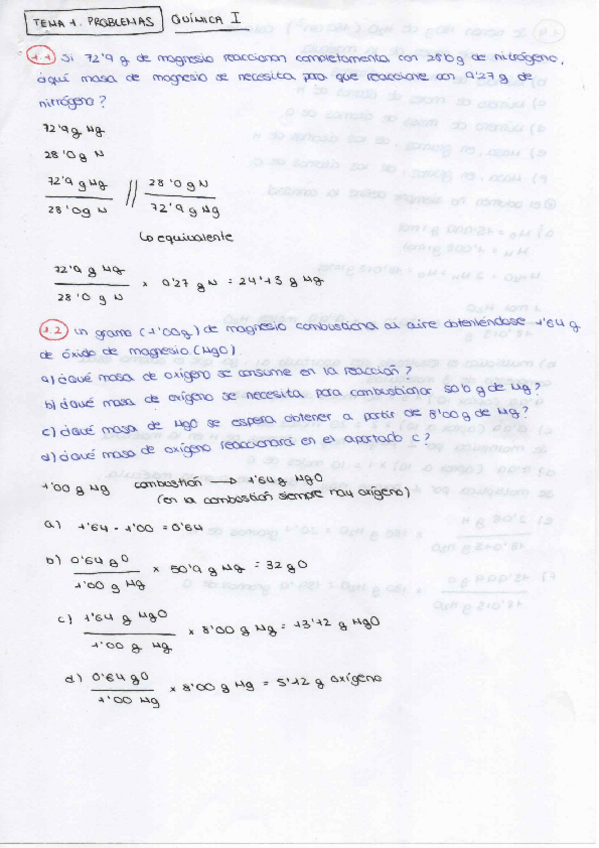 TEMA 1. PROBLEMAS QUÍMICA I
1.1 Si 72'9 g de magnesio reaccionan completamente con 28'0 g de nitrógeno,
¿qué masa de magnesio se necesita para que reaccione con 9'27 g de
nitrógeno?
72'9 g Mg
28'0 g N
72'9 g Mg // 28'0 g N
28'0g N 72'9 g Mg
Lo equivalente
72'9 g Mg × 9'27 g N = 24'13 g Mg
28'0 g N
1.2 Un gramo (1'00g) de magnesio combustiona al aire obteniéndose 1'64 g
de óxido de magnesio (MgO).
a) ¿qué masa de oxígeno se consume en la reacción?
b) ¿qué masa de oxígeno se necesita para combustionar 50'0 g de Mg?
c) ¿qué masa de MgO se espera obtener a partir de 8'00 g de Mg?
d) ¿qué masa de oxígeno reaccionará en el apartado c?
1'00 g Mg combustión → 1'64 g MgO
(en la combustión siempre hay oxígeno)
a) 1'64 - 1'00 = 0'64
b) 0'64 g O × 50'9 g Mg = 32 g O
1'00 g Mg
c) 1'64 g MgO × 8'00 g Mg = 13'12 g MgO
1'00 g Mg
d) 0'64 g O × 8'00 g Mg = 5'12 g oxígeno
1'00 Mg